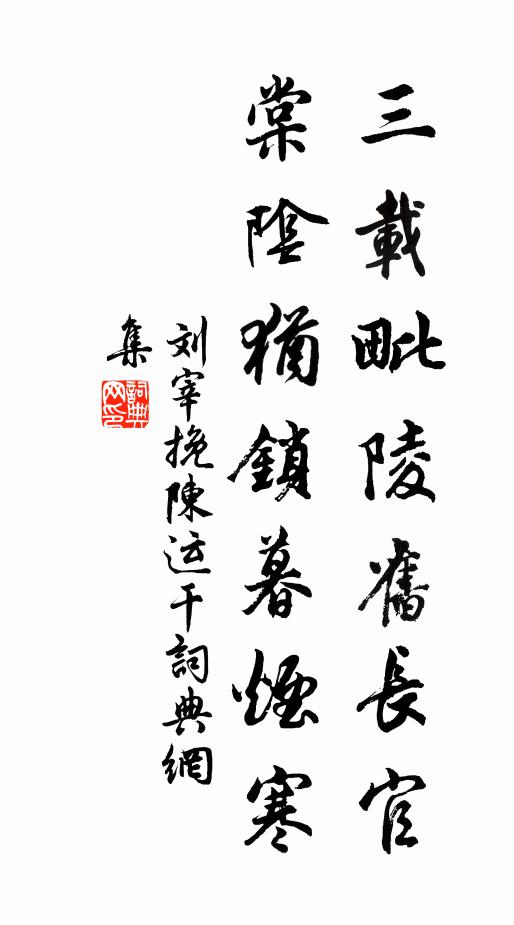 三載毗陵舊長官
棠陰猶鎖暮煙寒
刘宰挽陳运干詞典網
集
詞典網印